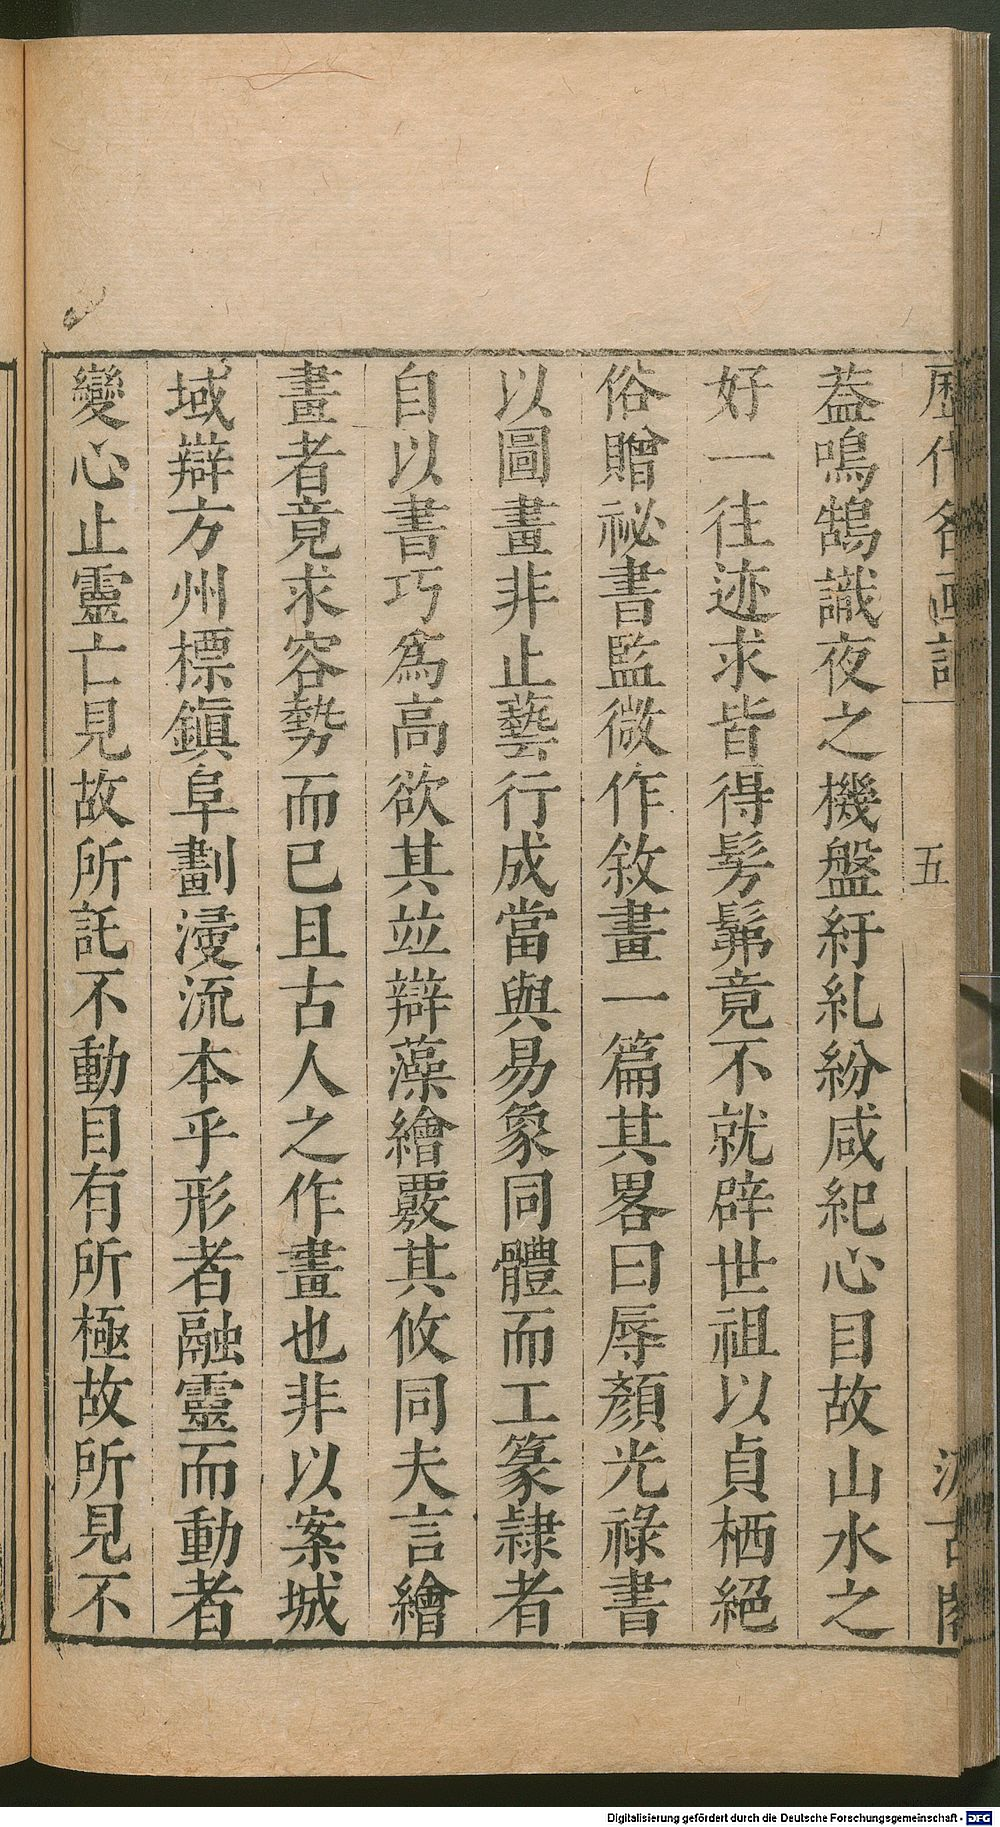 歷代名画記
五
汲古閣
葢鳴鵠識夜之機盤紆糺紛咸紀心目故山水之
好一往迹求皆得髣髴竟不就辟世祖以貞栖絕
俗贈祕書監微作敘畫一篇其畧曰辱顏光祿書
以圖畫非止藝行成當與易象同體而工篆隷者
自以書巧爲高欲其並辯藻繪覈其攸同夫言繪
畫者竟求容勢而已且古人之作畫也非以案城
域辯方州標鎮阜劃浸流本乎形者融靈而動者
變心止靈亡見故所託不動目有所極故所見不
Digitalisierung gefördert durch die Deutsche Forschungsgemeinschaft - DFG